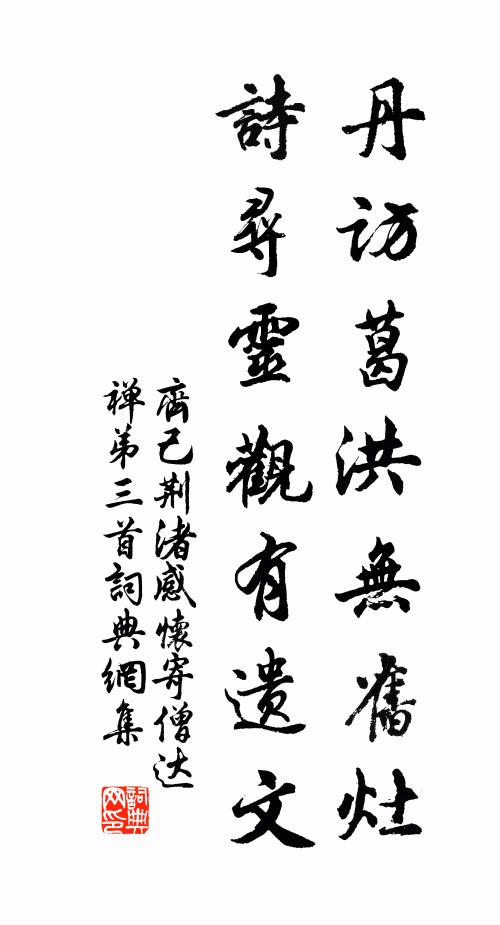 丹訪葛洪無舊灶
詩尋靈觀有遺文
齊己荆渚感懷寄僧达
禅弟三首詞典網集
詞典網印